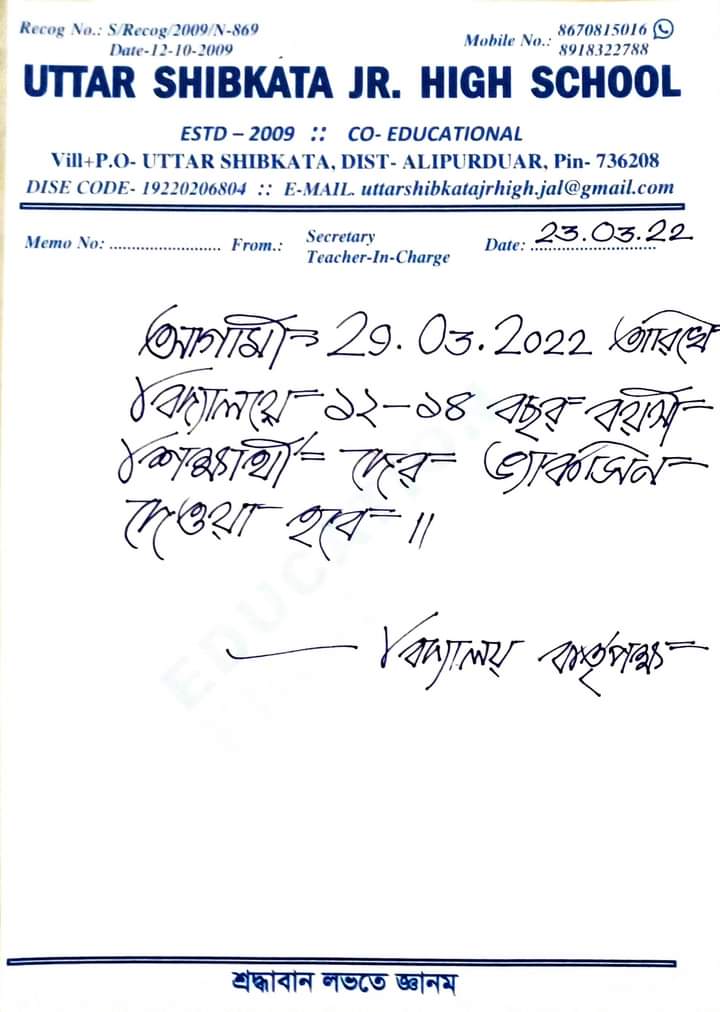 Recog No.: S/Recog/2009/N-869
Date-12-10-2009
Mobile No.: 8670815016
8918322788
UTTAR SHIBKATA JR. HIGH SCHOOL
ESTD – 2009 :: CO- EDUCATIONAL
Vill+P.O- UTTAR SHIBKATA, DIST- ALIPURDUAR, Pin- 736208
DISE CODE- 19220206804 :: E-MAIL. uttarshibkatajrhigh.jal@gmail.com
Memo No: ........................ From.: Secretary
Teacher-In-Charge
Date: 23.03.22
আগামী 29.03.2022 তারিখে
বিদ্যালয়ে ১২-১৪ বছর বয়সী
শিক্ষার্থী দের ভ্যাকসিন
দেওয়া হবে ॥
EDUCATION
— বিদ্যালয় কর্তৃপক্ষ
শ্রদ্ধাবান লভতে জ্ঞানম